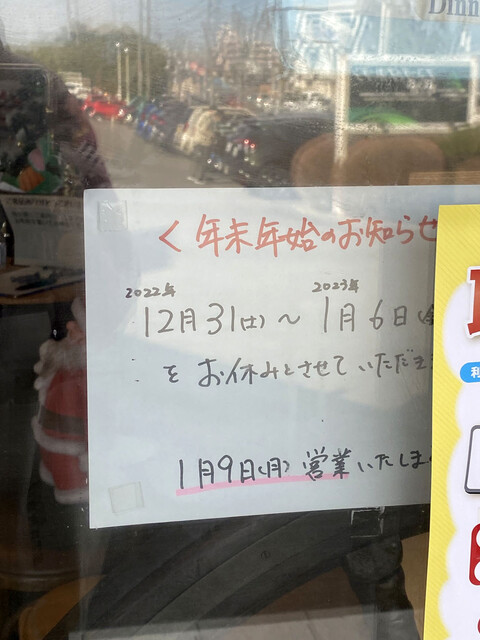 Dinn
< 年末年始のお知らせ
2022年 2023年
12月31(土)〜 1月6日(金
を お休みとさせていただきま
1月9日(月) 営業いたしま
利